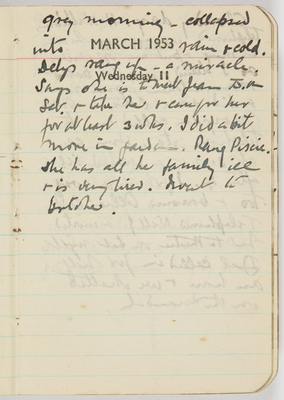 grey morning - collapsed
into rain & cold.
MARCH 1953
Delys rang up - a miracle.
Wednesday 11
Says she is to meet Jean T. on
Sat. & take her & camp for her
for at least 3 wks. I did a bit
more in garden. Rang
She has all her family ill
& is very tired. Went to